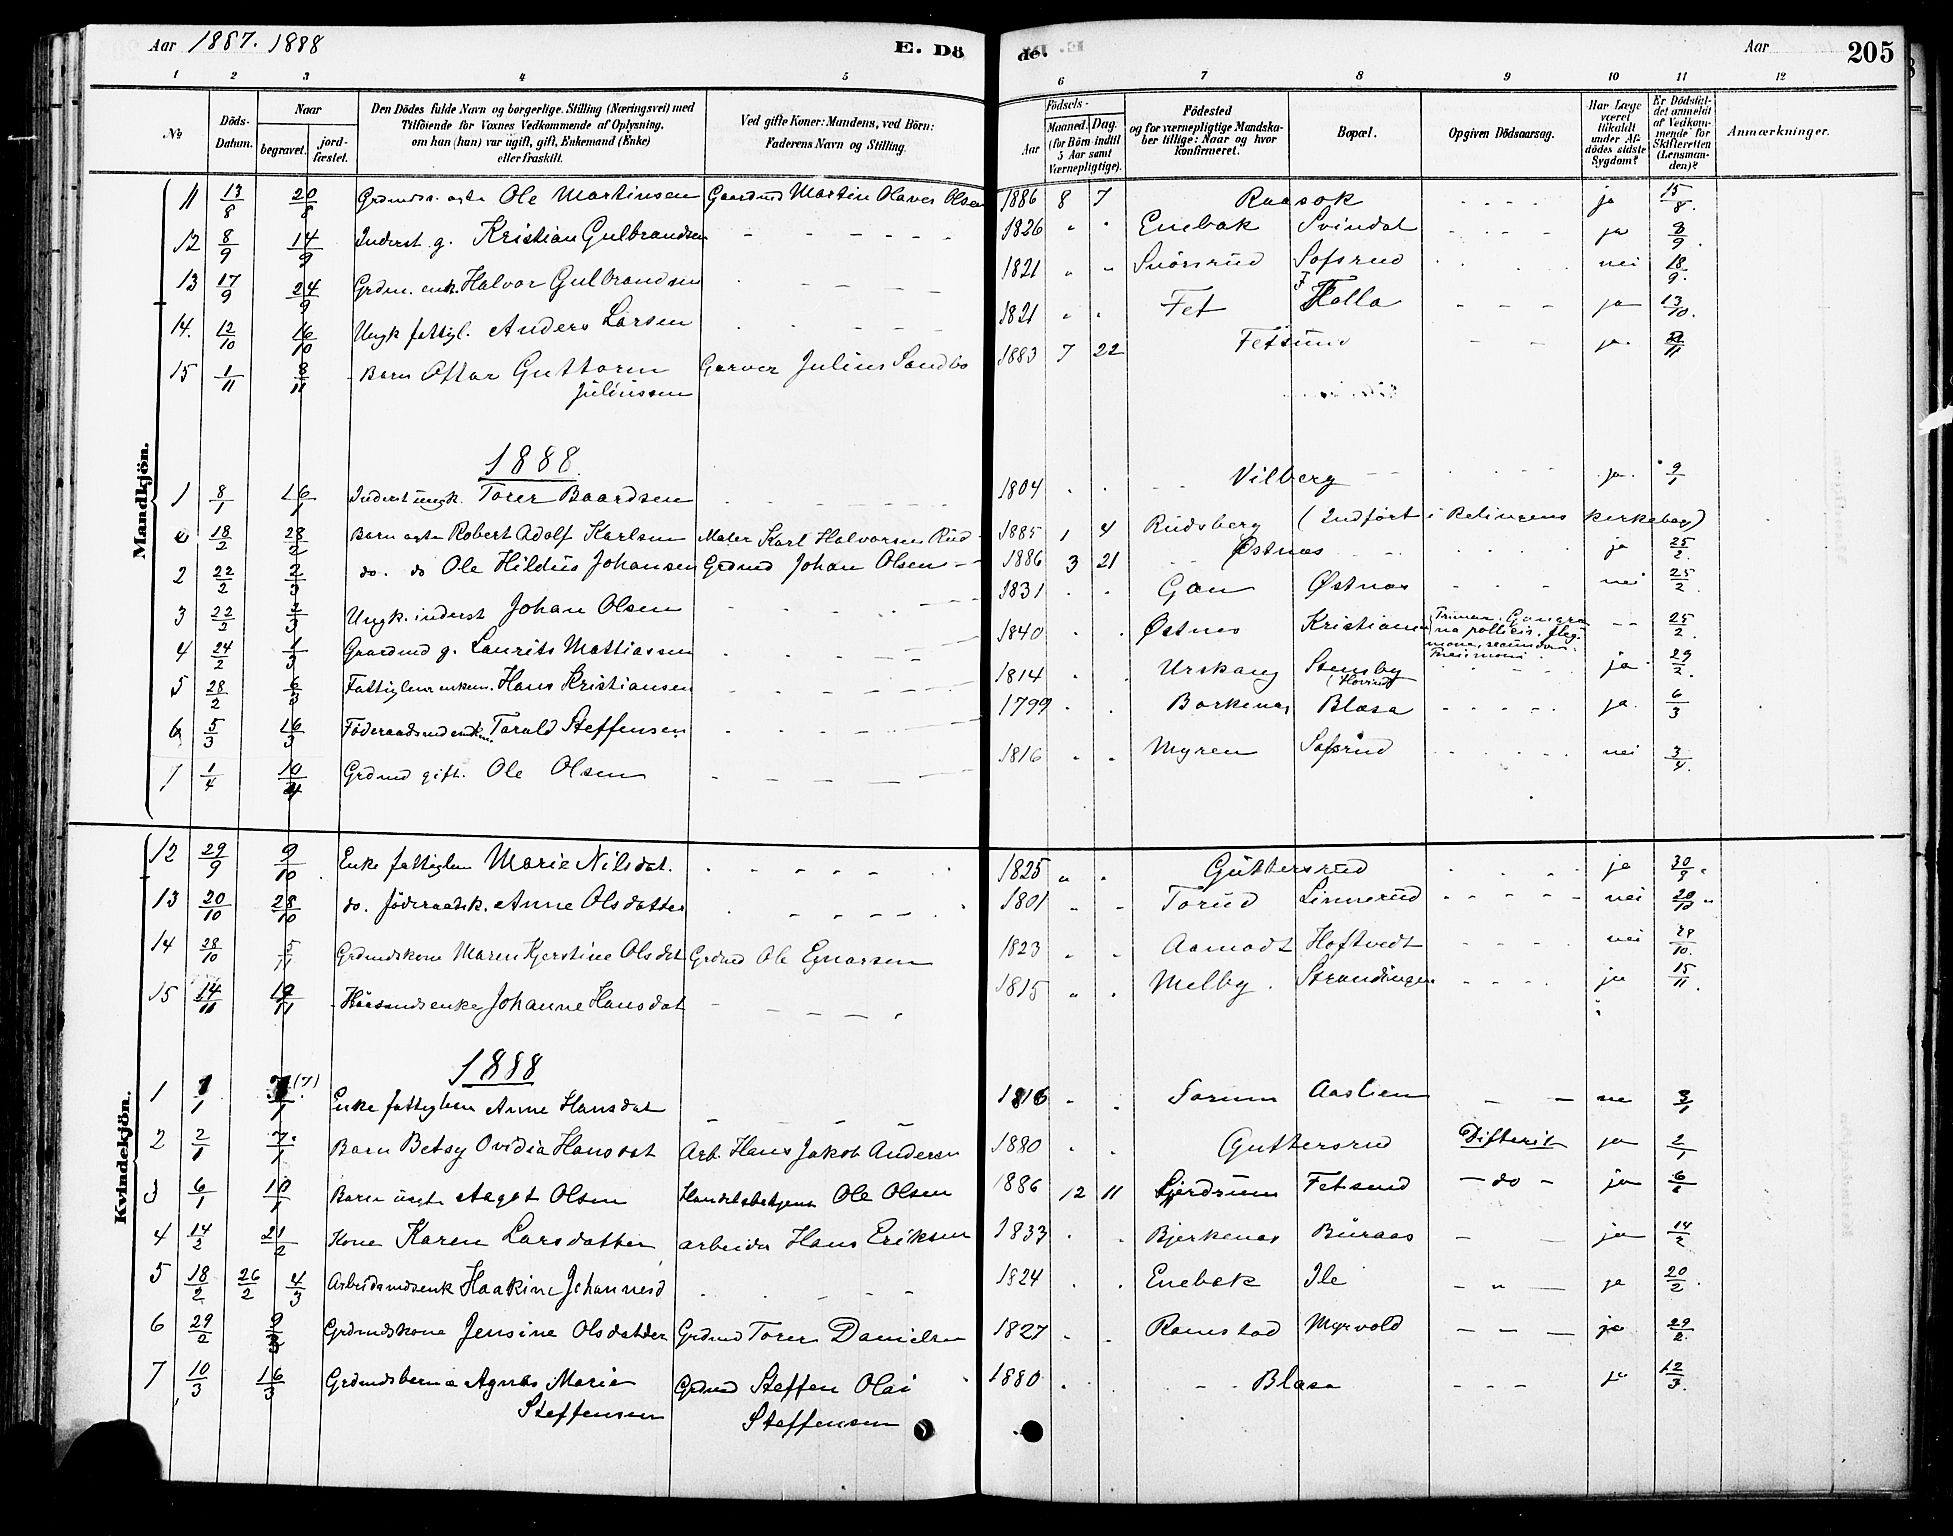 Aar 1887. 1888 E. Dö de. Aar 205
1 2 3 4 5 6 7 8 9 10 11 12
No Döds-Datum. Naar begravet. jordfæstet. Den Dödes fulde Navn og borgerlige Stilling (Næringsvei) med Tilföiende for Voxnes Vedkommende af Oplysning, om han (hun) var ugift, gift, Enkemand (Enke) eller fraskilt. Ved gifte Koner: Mandens, ved Börn: Faderens Navn og Stilling. Födsels- Aar Maaned. Dag. (for Börn indtil 5 Aar samt Værnepligtige). Födested og for værnepligtige Mandskaber tillige: Naar og hvor konfirmeret. Bopæl. Opgiven Dödsaarsag. Har Læge været tilkaldt under Afdödes sidste Sygdom? Er Dödsfaldet anmeldt af Vedkommende for Skifteretten (Lensmanden)? Anmærkninger.
Mandkjön.
11 13/8 20/8 Grdmds. ægte Ole Martinsen Gaardmd Martin Olaves Olsen 1886 8 7 Raasok ja 15/8.
12 8/9 14/9 Inderst g. Kristian Gulbrandsen 1826 Enebak Svindal ja 8/9.
13 17/9 24/9 Grdm. enk. Halvor Gulbrandsen 1821 Snörsrud Sofsrud nei 18/9.
14. 12/10 16/10 Ungk fattigl. Anders Larsen 1821 Fet Falla ja 13/10.
15 1/11 8/11 Barn Ottar Guttorm Garver Julius Sandbo 1883 7 22 Fetsund ja. 2/11
Juliussen
1888
1 8/1 16/1 Inderst ungk. Torer Baardsen 1804 Vilberg ja. 9/1
0 18/2 28/2 Barn ægte Robert Adolf Karlsen Maler Karl Halvorsen Rud 1885 1 4 Rudsberg (Indfört i Relingens kirkebog)
2 22/2 2/3 do. do Ole Hildus Johansen Grdmd Johan Olsen 1886 3 21 Østnes ja 25/2.
3 22/2 2/3 Ungk. inderst Johan Olsen 1831 Gan Østnes nei 25/2.
4 24/2 1/3 Gaardmd g. Laurits Mattiassen 1840 Østnes 25/2.
5 28/2 6/3 Fattiglem enkem. Hans Kristiansen 1814 Urskaug Stensby ja 29/2.
6 5/3 16/3 Föderaadsmd enkm. Torald Steffensen 1799 Borkenes Blasa ja. 6/3
7 1/4 10/4 Grdmd gift. Ole Olsen 1816 Myren Sofsrud nei 3/4.
Kvindekjön.
12 29/9 9/10 Enke fattiglem Marie Nilsdat. 1825 Guttersrud ja 30/9.
13 20/10 28/10 do. föderaadsk. Anne Olsdatter 1801 Torud Linnerud nei 20/10
14 28/10 5/11 Grdmdskone Maren Kjerstine Olsdat Grdmd Ole Egnarsen 1823 Aamodt Hoftvedt nei 29/10.
15 14/11 19/11 Huusmdsenke Johanne Hansdat 1815 Melby Strandingen ja 15/11.
1888
1 1/1 7/1 (7) Enke fattiglem Anne Hansdat 1816 Sorum Aaslien nei 3/1
2 2/1 7/1 Barn Betsy Ovidia Hansdat Arb. Hans Jakob Andersen 1880 Guttersrud Difterit ja 2/1
3 6/1 10/1 Barn uægt Aagot Olsen Handelsbetjent Ole Olsen 1886 12 11 Gjerdrum Fetsund do ja 6/1
4 14/2 21/2 Kone Karen Larsdatter arbeider Hans Eriksen 1833 Bjerkenes Buraas ja 14/2
5 18/2 26/2 4/3 Arbeidsmdsenk Haakine Johannesd 1824 Enebak Ile ja 20/2.
6 29/2 9/3 Grdmdskone Jensine Olsdatter Grdmd Torer Danielsen 1827 Ramstad Myrvold ja 29/2.
7 10/3 16/3 Grdmdsbarn Agnes Marie Grdmd Steffen Olai 1880 Blasa ja 12/3.
Steffensen Steffensen